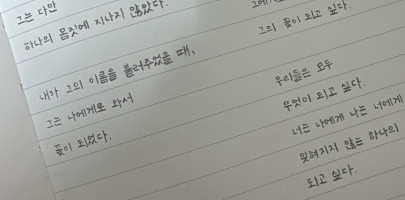 그는 다만
하나의 몸짓에 지나지 않았다.
내가 그의 이름을 불러주었을 때,
그는 나에게로 와서
꽃이 되었다.
그의 꽃이 되고 싶다.
우리들은 모두
무엇이 되고 싶다.
너는 나에게 나는 너에게
잊혀지지 않는 하나의
되고 싶다.